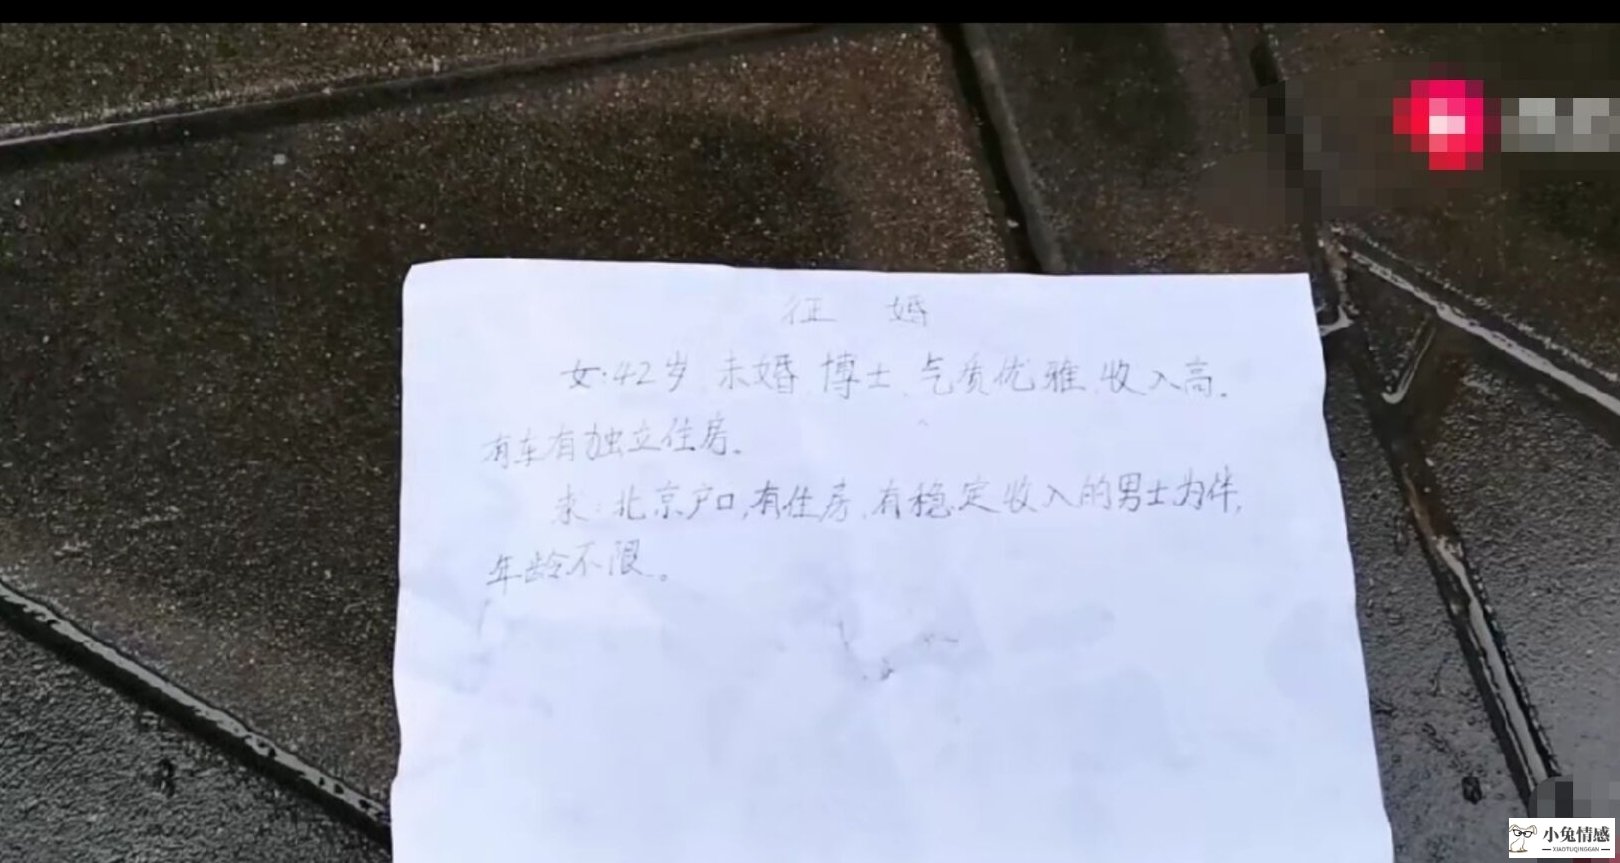 征 婚
女:42岁、未婚、博士、气质优雅、收入高。
有车有独立住房。
求:北京户口,有住房、有稳定收入的男士为伴,
年龄不限。
小兔情感
XIAOTUQINGGAN